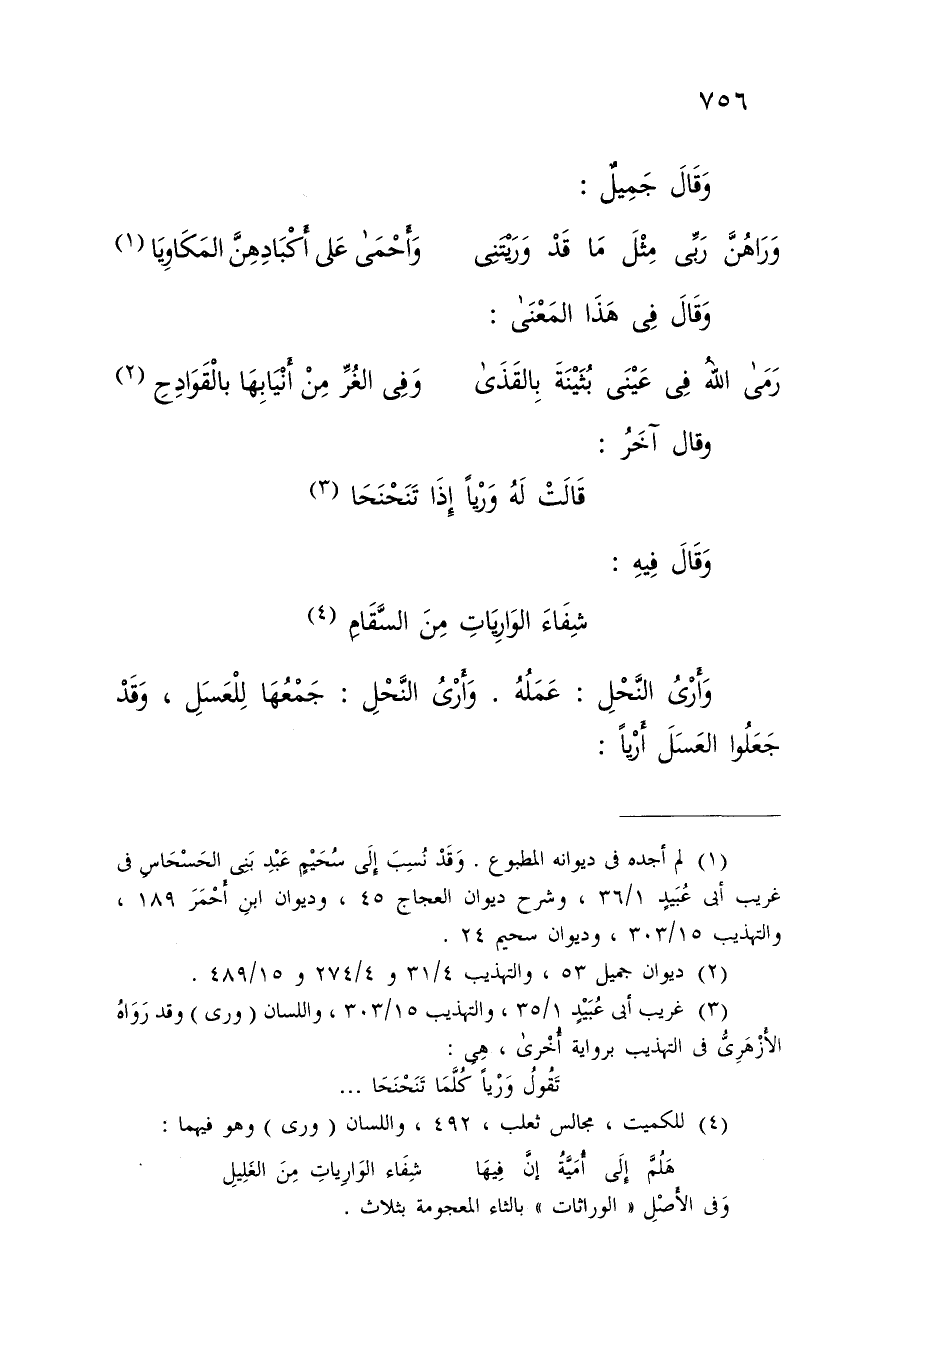 ٧٥٦
وَقَالَ جَمِيلٌ :
وَرَاهُنَّ رَبِّى مِثْلَ مَا قَدْ وَرَيْتَنِى وَأَحْمَىٰ عَلى أَكْبَادِهِنَّ المَكَاوِيَا (١)
وَقَالَ فِى هَذَا المَعْنَىٰ :
رَمَىٰ اللهُ فِى عَيْنَى بُثَيْنَةَ بِالقَذَىٰ وَفِى الغُرِّ مِنْ أَنْيَابِهَا بالْقَوَادِحِ (٢)
وقال آخَرُ :
قَالَتْ لَهُ وَرْياً إِذَا تَنَحْنَحَا (٣)
وَقَالَ فِيهِ :
شِفَاءَ الوَارِيَاتِ مِنَ السَّقَامِ (٤)
وَأَرْىُ النَّحْلِ : عَمَلُهُ . وَأَرْىُ النَّحْلِ : جَمْعُهَا لِلْعَسَلِ ، وَقَدْ
جَعَلُوا العَسَلَ أَرْياً :
(١) لم أجده فى ديوانه المطبوع . وَقَدْ نُسِبَ إِلَى سُحَيْمٍ عَبْدِ بَنِى الحَسْحَاسِ فى
غريب أبى عُبَيدٍ ٣٦/١ ، وشرح ديوان العجاج ٤٥ ، وديوان ابنِ أَحْمَرَ ١٨٩ ،
والتهذيب ٣٠٣/١٥ ، وديوان سحيم ٢٤ .
(٢) ديوان جميل ٥٣ ، والتهذيب ٣١/٤ و ٢٧٤/٤ و ٤٨٩/١٥ .
(٣) غريب أبى عُبَيْدٍ ٣٥/١ ، والتهذيب ٣٠٣/١٥ ، واللسان ( ورى ) وقد رَوَاهُ
الأَزْهَرِىُّ فى التهذيب برواية أُخْرىٰ ، هِى :
تَقُولُ وَرْياً كُلَّمَا تَنَحْنَحَا ...
(٤) للكميت ، مجالس ثعلب ، ٤٩٢ ، واللسان ( ورى ) وهو فيهما :
هَلُمَّ إِلَى أُمَيَّةَ إِنَّ فِيهَا شِفَاء الوَارِياتِ مِنَ الغَلِيلِ
وَفى الأَصْلِ « الوراثات » بالثاء المعجومة بثلاث .